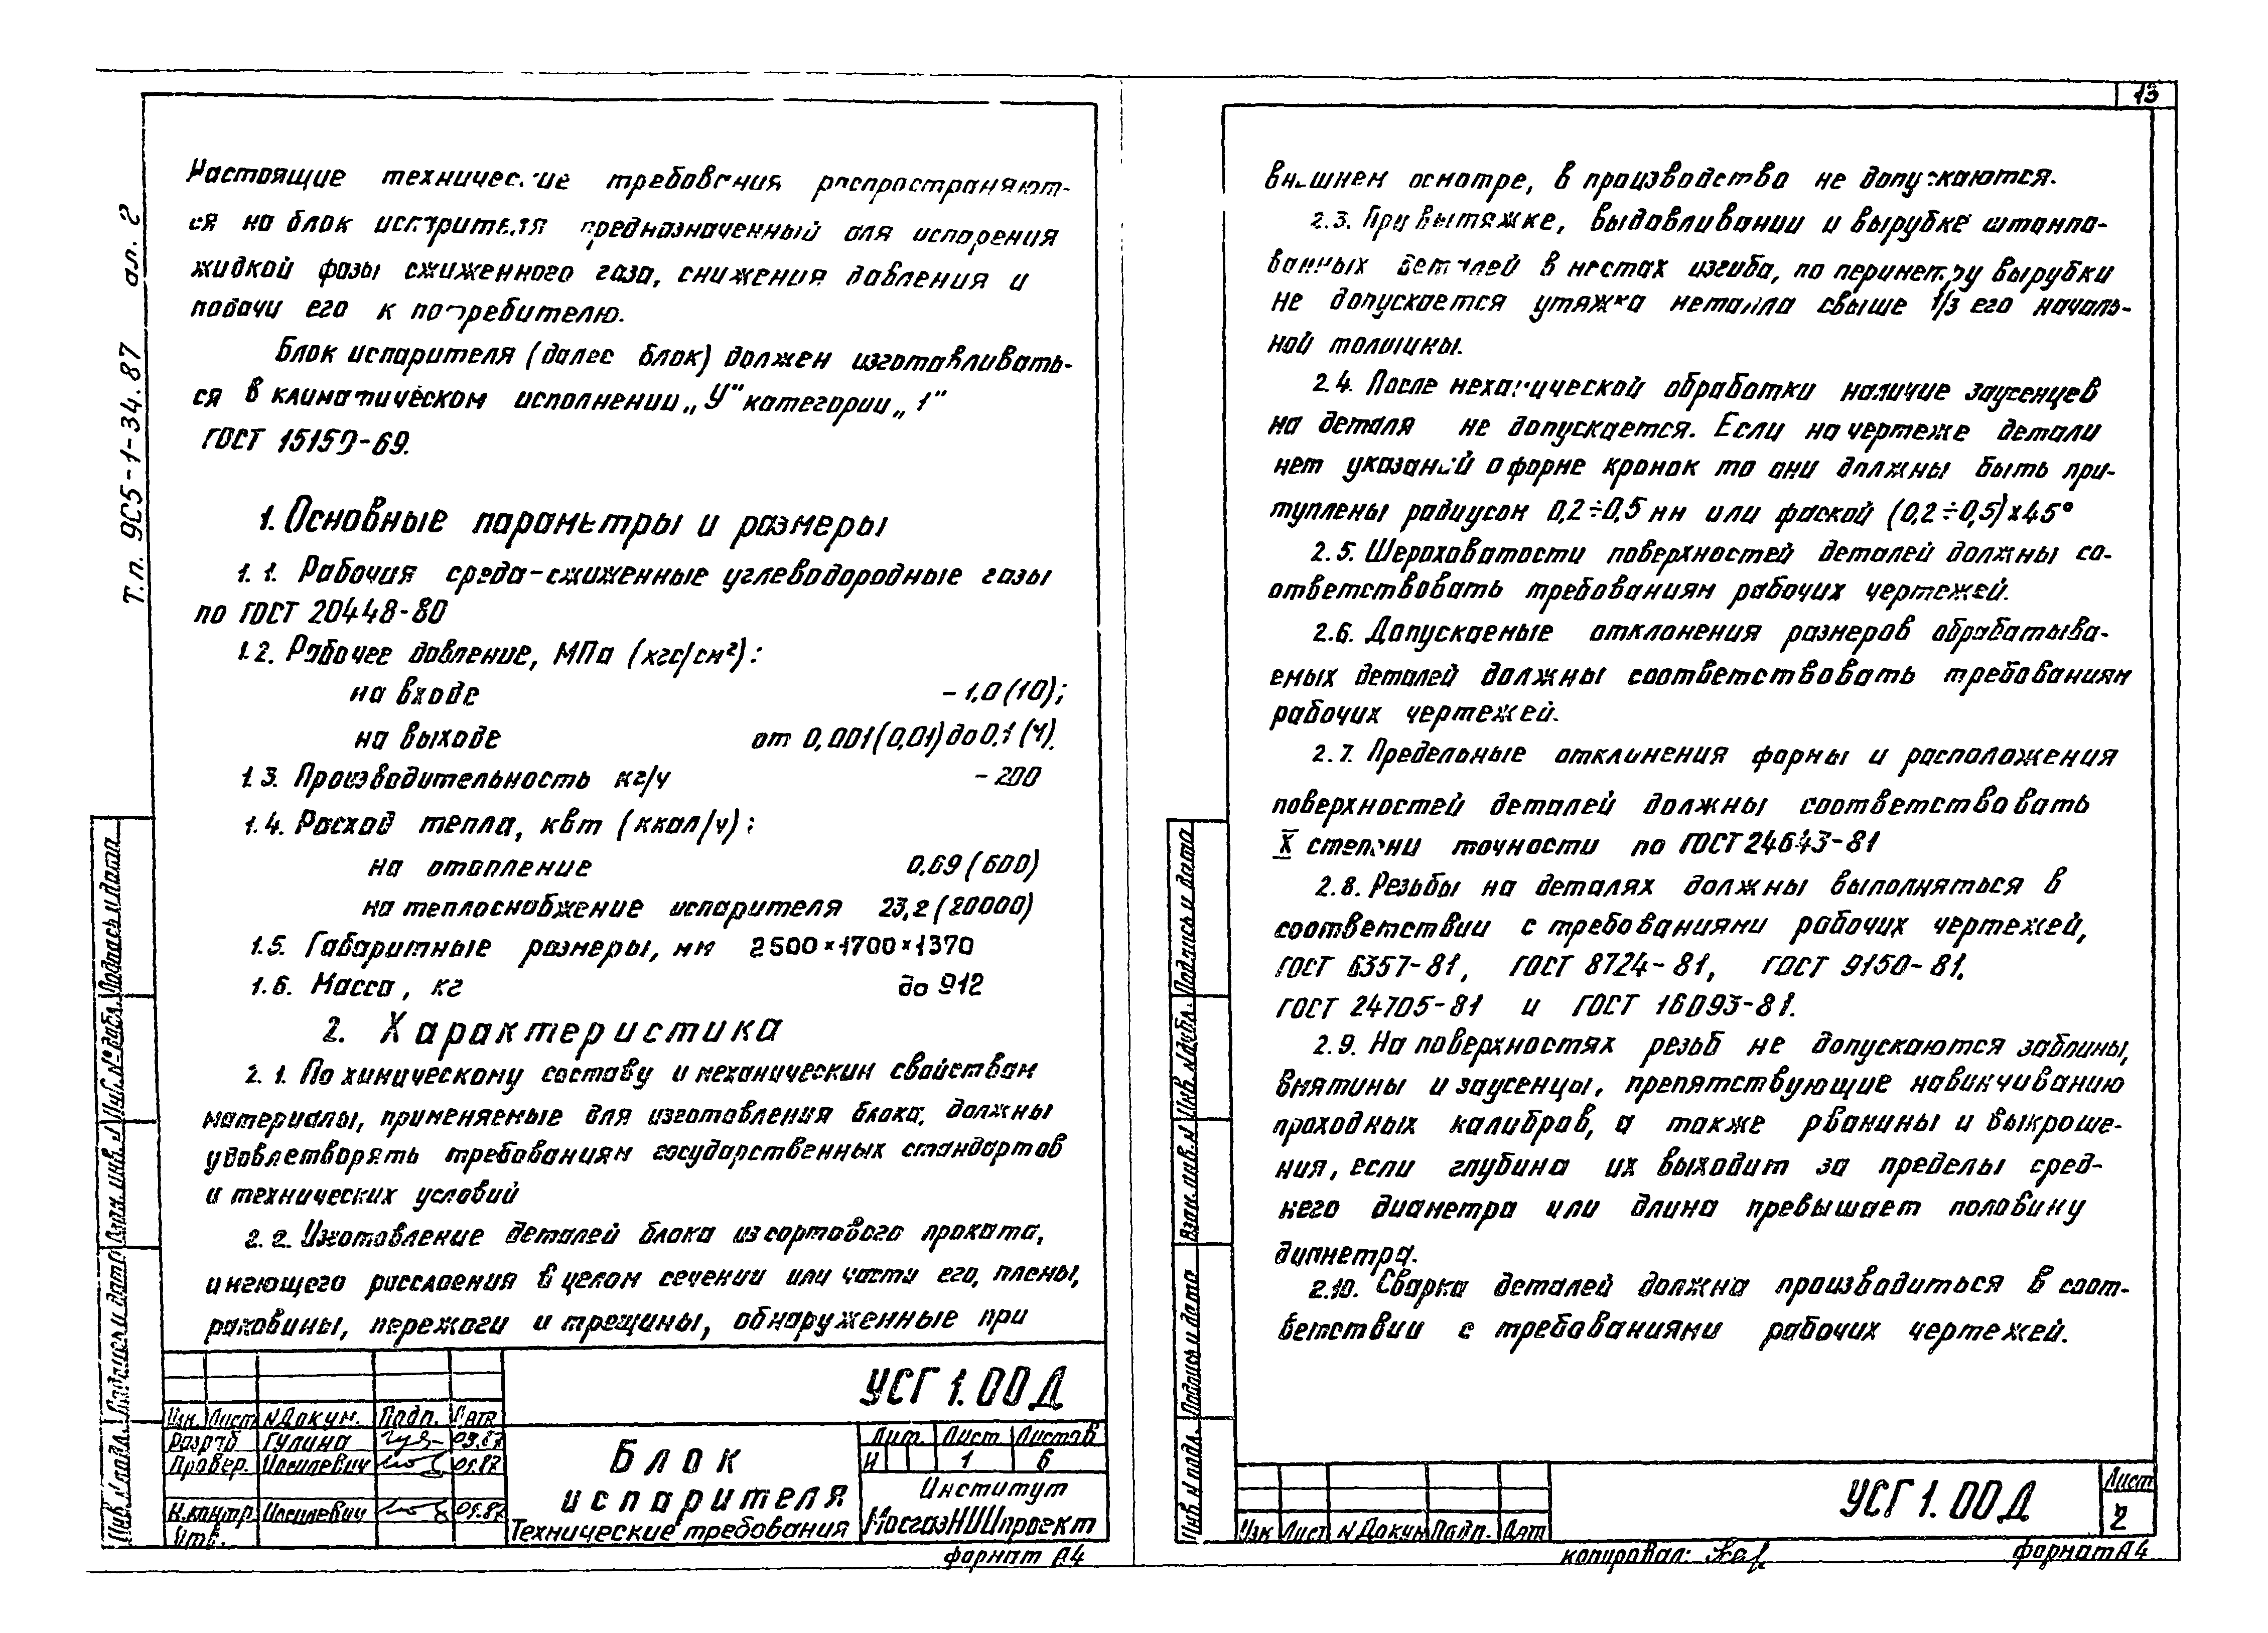 13
Т.п. 905-1-34.87 ал. 2
Настоящие технические требования распространяют-
ся на блок испарителя предназначенный для испарения
жидкой фазы сжиженного газа, снижения давления и
подачи его к потребителю.
Блок испарителя (далее блок) должен изготавливать-
ся в климатическом исполнении „У" категории „1"
ГОСТ 15150-69.
1. Основные параметры и размеры
1.1. Рабочия среда-сжиженные углеводородные газы
по ГОСТ 20448-80
1.2. Рабочее давление, МПа (кгс/см²):
на входе – 1,0 (10);
на выходе от 0,001 (0,01) до 0,1 (1).
1.3. Производительность кг/ч – 200
1.4. Расход тепла, квт (ккал/ч):
на отопление 0,69 (600)
на теплоснабжение испарителя 23,2 (20000)
1.5. Габаритные размеры, мм 2500×1700×1370
1.6. Масса, кг до 912
2. Характеристика
2.1. По химическому составу и механическим свойствам
материалы, применяемые для изготовления блока, должны
удовлетворять требованиям государственных стандартов
и технических условий
2.2. Изготовление деталей блока из сортового проката,
имеющего расслоения в целом сечении или части его, плены,
раковины, пережоги и трещины, обнаруженные при
УСГ 1.00 Д
Изм. Лист N Докум. Подп. Дата
Разраб Гулина 09.87
Провер. Иосилевич 09.87
Н.контр Иосилевич 09.87
Утв.
Блок
испарителя
Технические требования
Лит. Лист Листов
И 1 6
Институт
МосгазНИИпроект
формат А4
Инв. N подл. Подпись и дата Взам. инв. N Инв. N дубл. Подпись и дата
внешнем осмотре, в производство не допускаются.
2.3. При вытяжке, выдавливании и вырубке штампо-
ванных деталей в местах изгиба, по периметру вырубки
не допускается утяжка металла свыше 1/3 его началь-
ной толщины.
2.4. После механической обработки наличие заусенцев
на деталя не допускается. Если на чертеже детали
нет указаний о форме кромок то они должны быть при-
туплены радиусом 0,2÷0,5 мм или фаской (0,2÷0,5)×45°
2.5. Шероховатости поверхностей деталей должны со-
ответствовать требованиям рабочих чертежей.
2.6. Допускаемые отклонения размеров обрабатыва-
емых деталей должны соответствовать требованиям
рабочих чертежей.
2.7. Предельные отклинения формы и расположения
поверхностей деталей должны соответствовать
X степени точности по ГОСТ 24643-81
2.8. Резьбы на деталях должны выполняться в
соответствии с требованиями рабочих чертежей,
ГОСТ 6357-81, ГОСТ 8724-81, ГОСТ 9150-81,
ГОСТ 24705-81 и ГОСТ 16093-81.
2.9. На поверхностях резьб не допускаются забоины,
вмятины и заусенцы, препятствующие навинчиванию
проходных калибров, а также рванины и выкроше-
ния, если глубина их выходит за пределы сред-
него диаметра или длина превышает половину
диаметра.
2.10. Сварка деталей должна производиться в соот-
ветствии с требованиями рабочих чертежей.
УСГ 1.00 Д
Лист
2
Изм Лист N Докум Подп. Дат
копировал:
формат А4
Инв. N подл. Подпись и дата Взам. инв. N Инв. N дубл. Подпись и дата